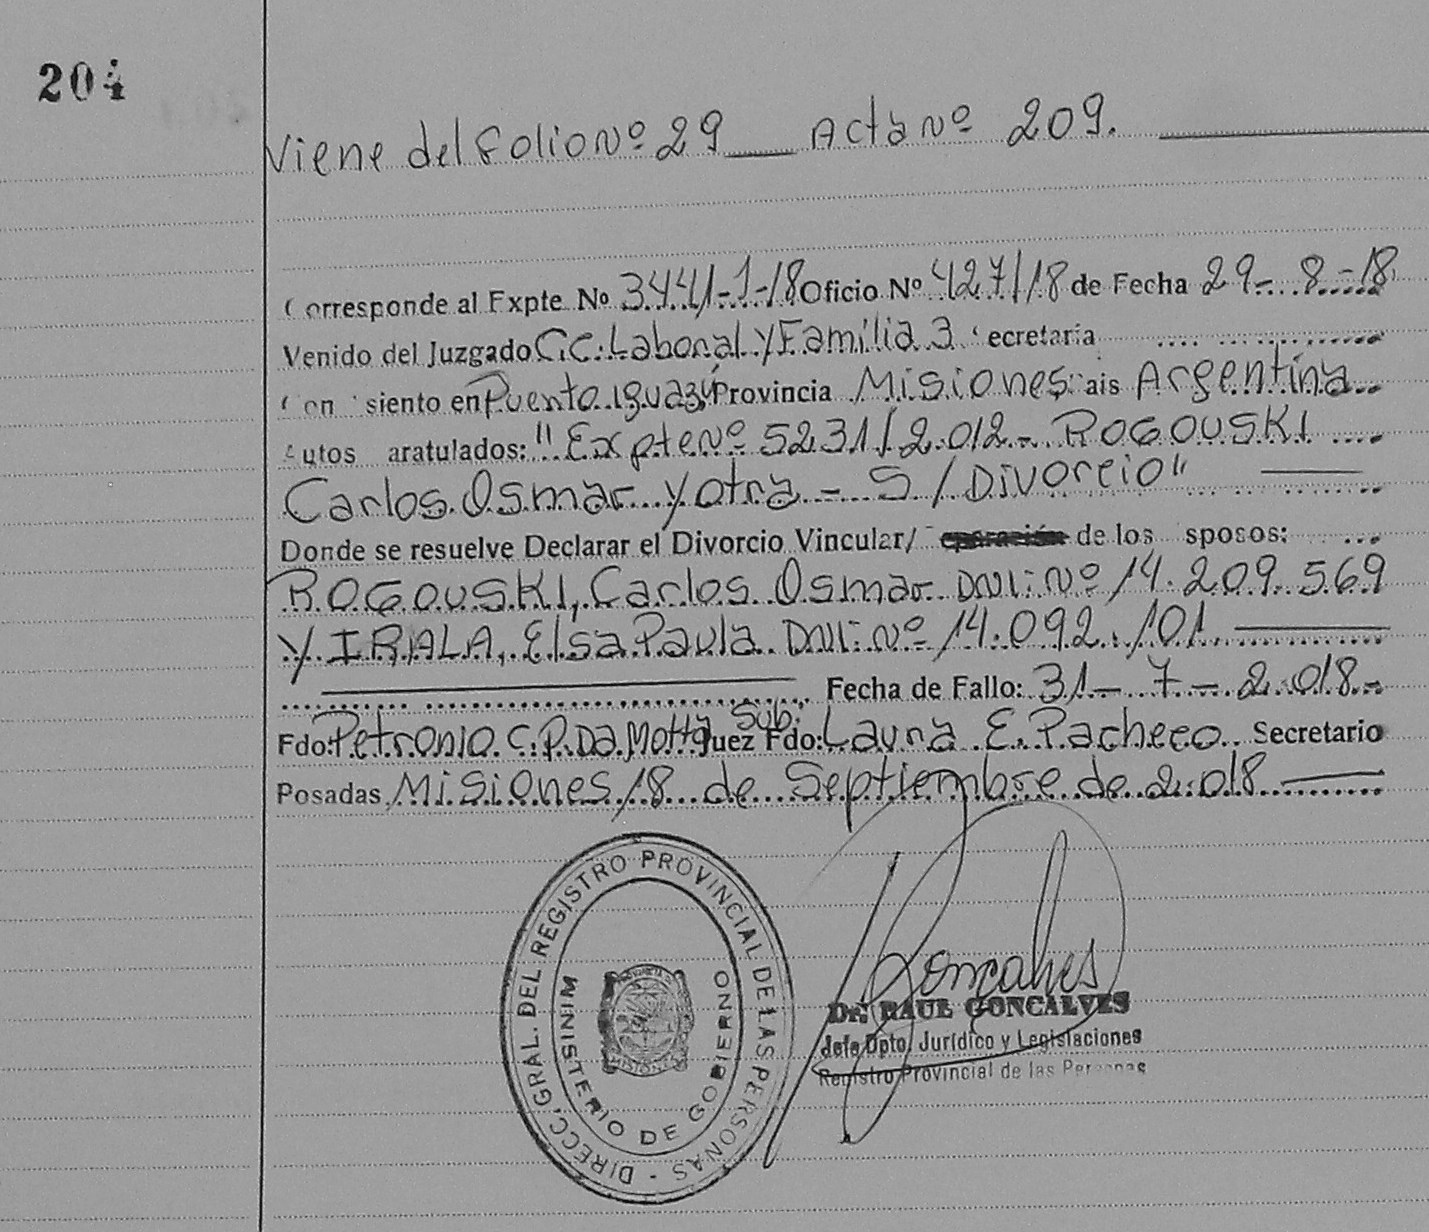 204
Viene del folio Nº 29 Acta Nº 209.
Corresponde al Expte Nº 3441-1-18 Oficio Nº 427/18 de Fecha 29-8-18
Venido del Juzgado C.C. Laboral y Familia 3 ecretaria
Con siento en Puerto Iguazú Provincia Misiones ais Argentina
utos aratulados: "Expte Nº 5231/2.012- ROGOUSKI
Carlos Osmar y otra - S/Divorcio"
Donde se resuelve Declarar el Divorcio Vincular/ eparación de los sposos:
ROGOUSKI, Carlos Osmar DNI: Nº 14.209.569
y IRALA, Elsa Paula. DNI: Nº 14.092.101
Fecha de Fallo: 31-7-2.018-
Sub:
Fdo: Petronio C.P. Da Motta Juez Fdo: Laura E. Pacheco Secretario
Posadas, Misiones 18 de Septiembre de 2.018
DIRECC, GRAL. DEL REGISTRO PROVINCIAL DE LAS PERSONAS -
MINISTERIO DE GOBIERNO
MISIONES
Goncalves
Dr. RAUL GONCALVES
Jefe Dpto, Jurídico y Legislaciones
Registro Provincial de las Personas